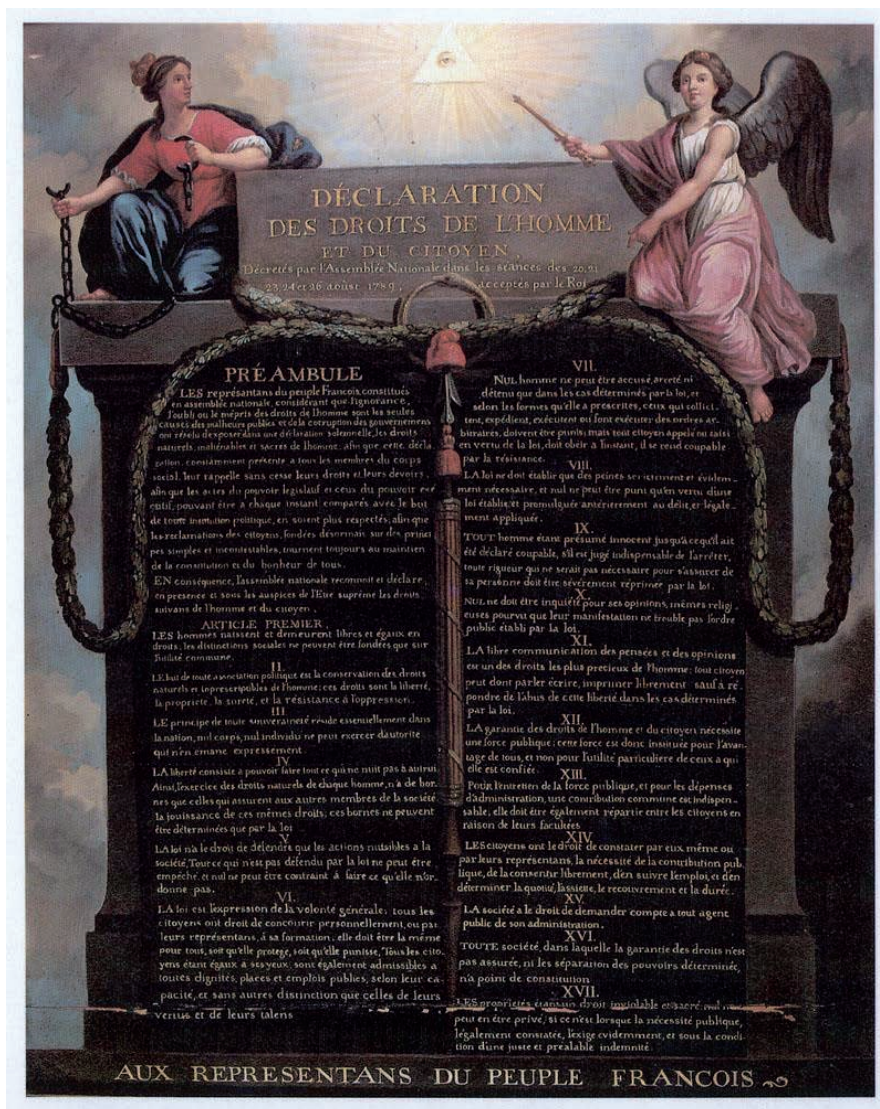 DÉCLARATION
DES DROITS DE L'HOMME
ET DU CITOYEN,
Décretés par l'Assemblée Nationale dans les séances des 20, 21
23 24 et 26 aoûst 1789, acceptés par le Roi
PRÉAMBULE
LES représentans du peuple François, constitués
en assemblée nationale, considérant que l'ignorance,
l'oubli ou le mépris des droits de l'homme sont les seules
causes des malheurs publics et de la corruption des gouvernemens
ont résolu d'exposer dans une déclaration solemnelle, les droits
naturels, inaliénables et sacrés de l'homme; afin que cette décla
ration, constamment présente a tous les membres du corps
social, leur rappelle sans cesse leurs droits et leurs devoirs,
afin que les actes du pouvoir legislatif et ceux du pouvoir exé
cutif, pouvant être a chaque instant comparés avec le but
de toute institution politique, en soient plus respectés; afin que
les reclamations des citoyens, fondées désormais sur des princi
pes simples et incontestables, tournent toujours au maintien
de la constitution et du bonheur de tous.
EN conséquence, l'assemblée nationale reconnoit et déclare,
en presence et sous les auspices de l'Etre suprême les droits
suivans de l'homme et du citoyen.
ARTICLE PREMIER.
LES hommes naissent et demeurent libres et égaux en
droits, les distinctions sociales ne peuvent être fondées que sur
l'utilité commune.
II.
LE but de toute association politique est la conservation des droits
naturels et inprescriptibles de l'homme; ces droits sont la liberté,
la propriété, la sureté, et la résistance à l'oppression.
III
LE principe de toute souveraineté réside essentiellement dans
la nation, nul corps, nul individu ne peut exercer d'autorité
qui n'en émane expressement.
IV
LA liberté consiste à pouvoir faire tout ce qui ne nuit pas à autrui
Ainsi, l'exercice des droits naturels de chaque homme, n'a de bor
nes que celles qui assurent aux autres membres de la société
la jouissance de ces mêmes droits; ces bornes ne peuvent
être déterminées que par la loi
V.
LA loi n'a le droit de défendre que les actions nuisibles a la
société. Tout ce qui n'est pas défendu par la loi ne peut être
empêché, et nul ne peut être contraint à faire ce qu'elle n'or-
donne pas.
VI.
LA loi est l'expression de la volonté générale; tous les
citoyens ont droit de concourir personnellement, ou par
leurs représentans, à sa formation; elle doit être la même
pour tous, soit qu'elle protege, soit qu'elle punisse, Tous les cito
yens étant égaux à ses yeux, sont également admissibles a
toutes dignités, places et emplois publics, selon leur ca-
pacité, et sans autres distinction que celles de leurs
vertus et de leurs talens
VII.
NUL homme ne peut être accusé, arreté, ni
détenu que dans les cas déterminés par la loi, et
selon les formes qu'elle a prescrites, ceux qui sollici-
tent, expédient, exécutent ou font exécuter des ordres ar-
bitraires, doivent être punis; mais tout citoyen appelé ou saisi
en vertu de la loi, doit obéir a l'instant, il se rend coupable
par la résistance.
VIII.
LA loi ne doit établir que des peines strictement et évidem-
ment nécessaire, et nul ne peut être puni qu'en vertu d'une
loi établie et promulguée antérierement au délit, et légale-
ment appliquée.
IX.
TOUT homme étant présumé innocent jusqu'a ce qu'il ait
été déclaré coupable, s'il est jugé indispensable de l'arrêter,
toute rigueur qui ne serait pas nécessaire pour s'assurer de
sa personne doit être sévèrement réprimée par la loi.
X.
NUL ne doit être inquiété pour ses opinions, mêmes religi
euses pourvu que leur manifestation ne trouble pas l'ordre
public établi par la loi.
XI.
LA libre communication des pensées et des opinions
est un des droits les plus precieux de l'homme; tout citoyen
peut donc parler, écrire, imprimer librement; sauf à ré-
pondre de l'abus de cette liberté dans les cas déterminés
par la loi.
XII.
LA garantie des droits de l'homme et du citoyen nécessite
une force publique; cette force est donc instituée pour l'avan-
tage de tous, et non pour l'utilité particuliere de ceux a qui
elle est confiée.
XIII.
POUR l'entretien de la force publique, et pour les dépenses
d'administration, une contribution commune est indispen-
sable; elle doit être également répartie entre les citoyens en
raison de leurs facultées
XIV.
LES citoyens ont le droit de constater par eux même ou
par leurs représentans, la nécessité de la contribution pub-
lique, de la consentir librement, d'en suivre l'emploi, et d'en
déterminer la quotité, l'assiette, le recouvrement et la durée.
XV.
LA société a le droit de demander compte a tout agent
public de son administration.
XVI.
TOUTE société, dans laquelle la garantie des droits n'est
pas assurée, ni les séparation des pouvoirs déterminée,
n'a point de constitution
XVII.
LES propriétés étant un droit inviolable et sacré, nul ne
peut en être privé, si ce n'est lorsque la nécessité publique,
légalement constatée, l'exige evidemment, et sous la condi
tion d'une juste et préalable indemnité.
AUX REPRESENTANS DU PEUPLE FRANCOIS